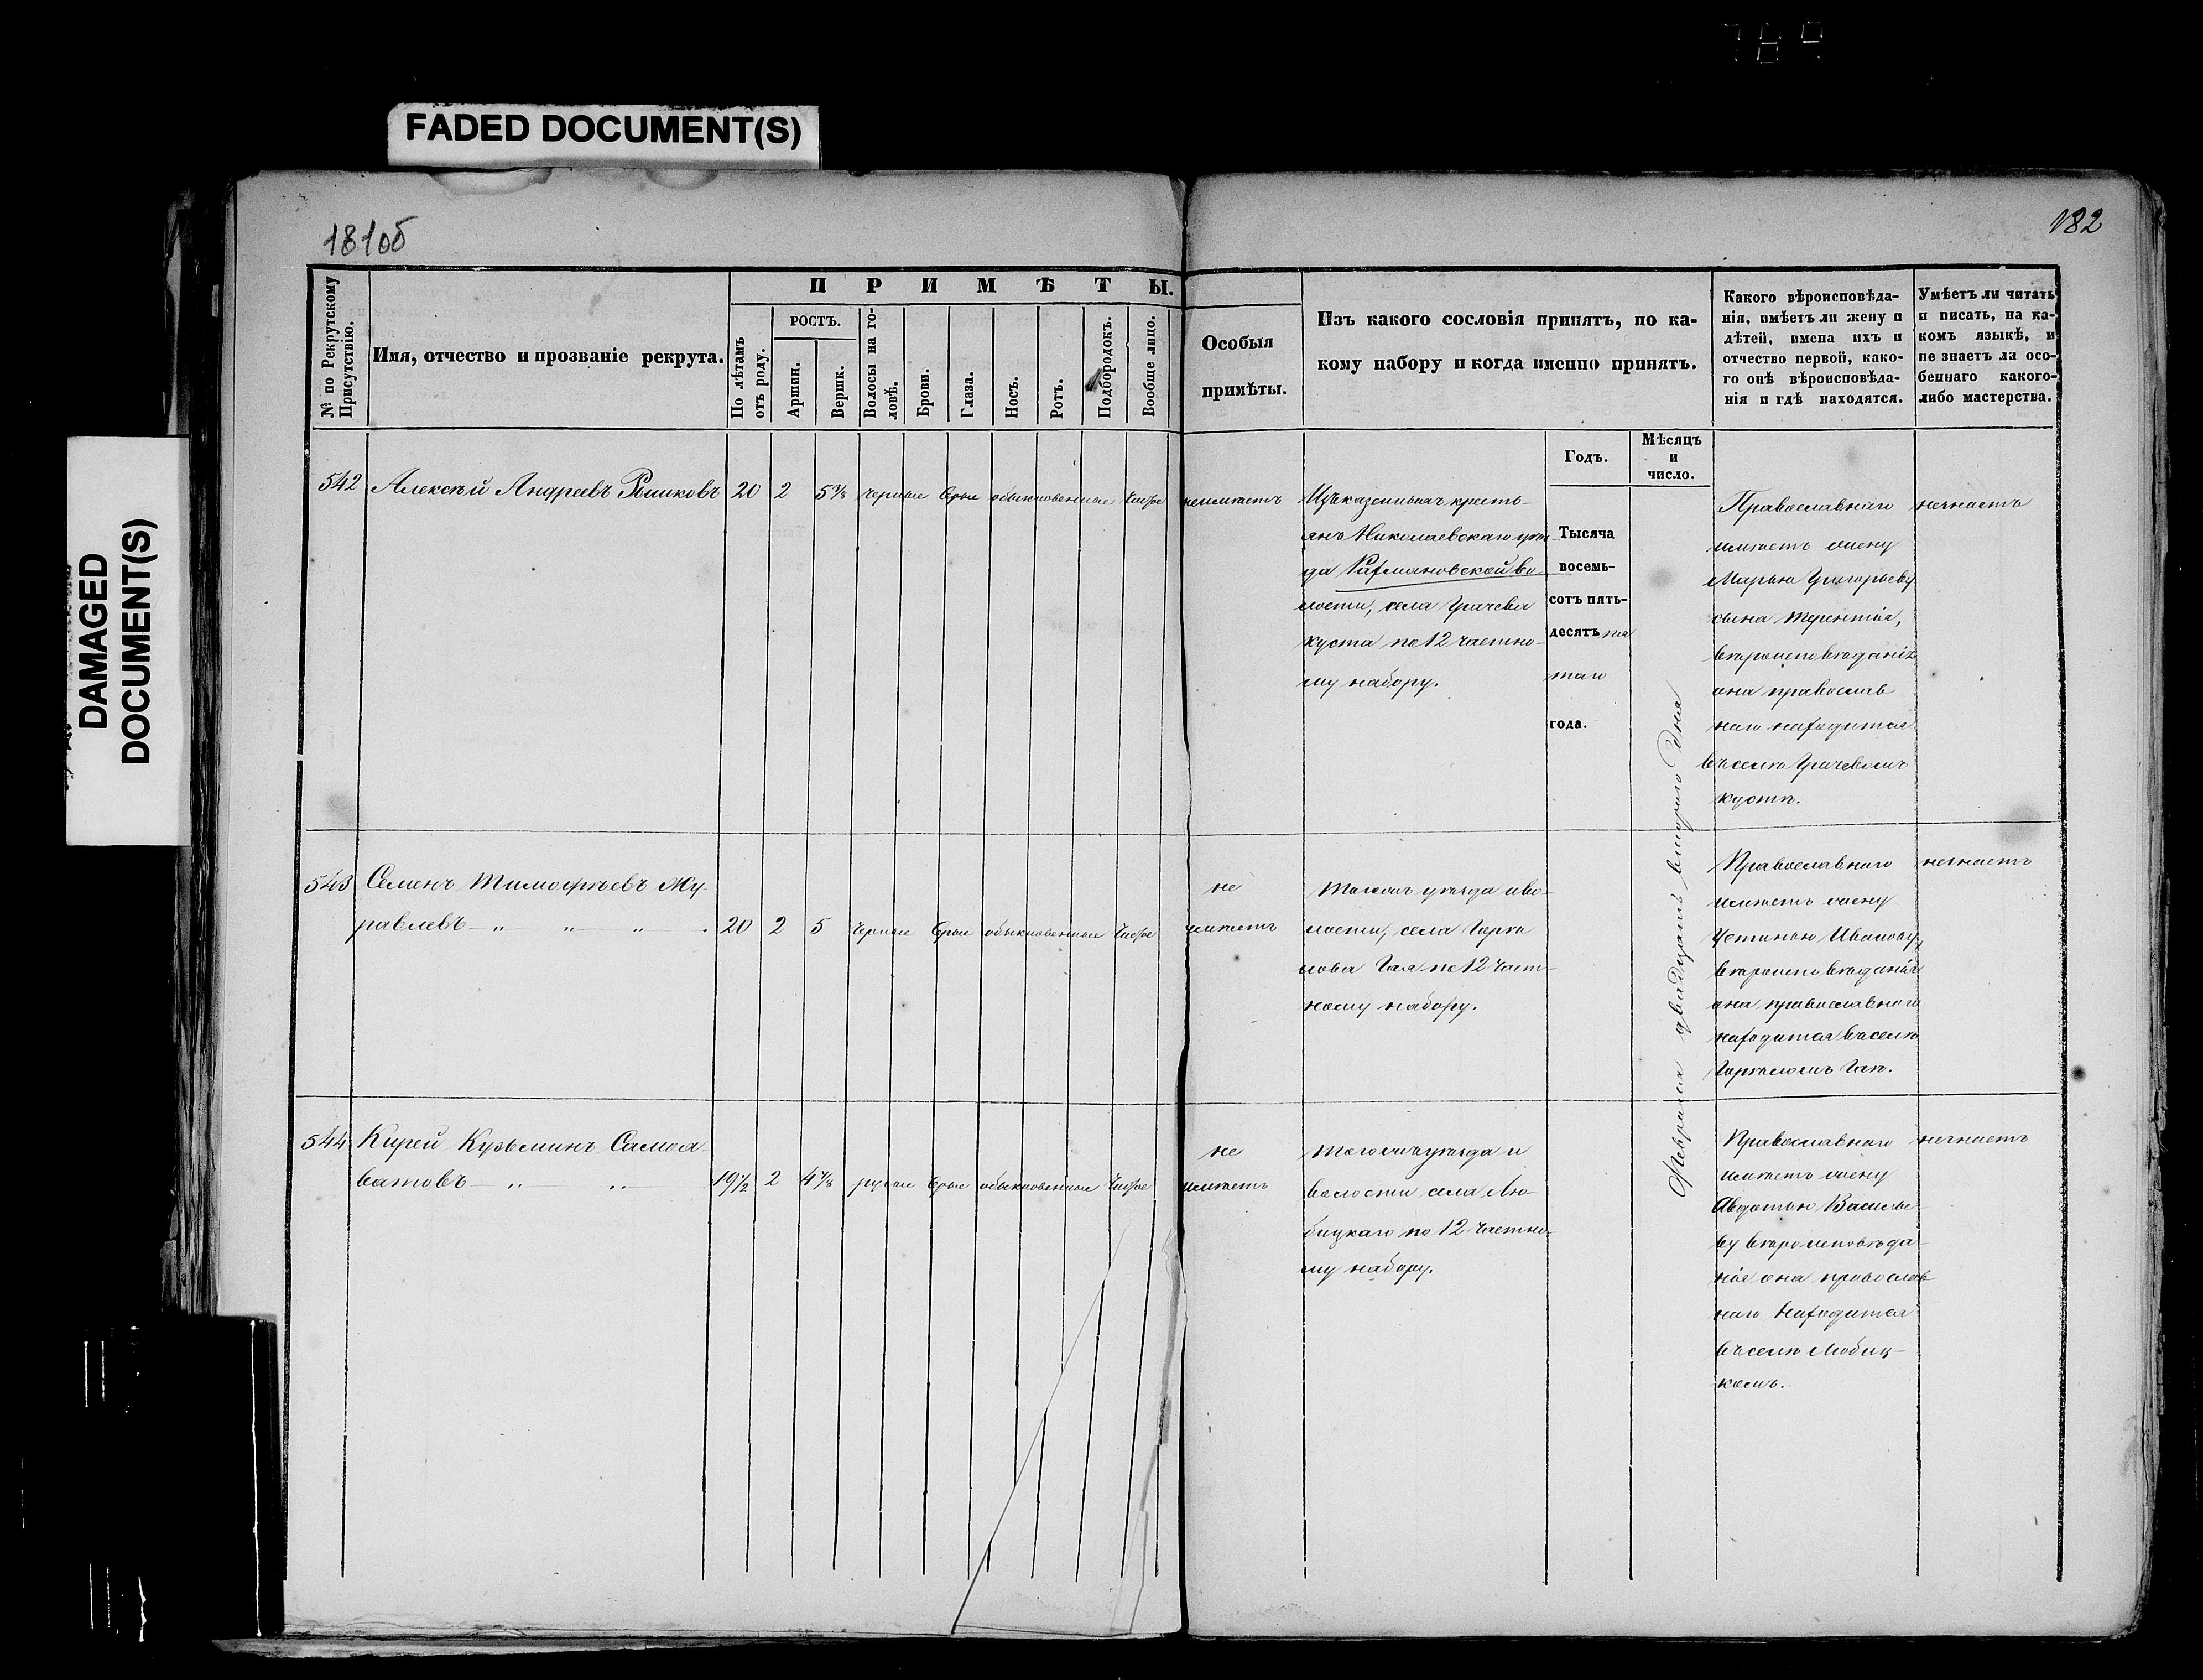 FADED DOCUMENT(S)
DAMAGED
DOCUMENT(S)
181об
182
П Р И М Ѣ Т Ы.
№ по Рекрутскому
Присутствію.
Имя, отчество и прозваніе рекрута.
По лѣтамъ
отъ роду.
РОСТЪ.
Аршин.
Вершк.
Волосы на го-
ловѣ.
Брови.
Глаза.
Носъ.
Ротъ.
Подбородокъ.
Вообще лицо.
Особыя
примѣты.
Изъ какого сословія принятъ, по ка-
кому набору и когда именно принятъ.
Годъ.
Мѣсяцъ
и
число.
Какого вѣроисповѣда-
нія, имѣетъ ли жену и
дѣтей, имена ихъ и
отчество первой, како-
го онѣ вѣроисповѣда-
нія и гдѣ находятся.
Умѣетъ ли читать
и писать, на ка-
комъ языкѣ, и
не знаетъ ли осо-
беннаго какого-
либо мастерства.
542 Алексѣй Андреевъ 20 2 5 3/8 черные сѣрые обыкновенные чистое неимѣетъ
Изъ казенныхъ кресть-
янъ Николаевскаго уѣз-
да Рахмановской во-
лости, села Грачева
куста по 12 частно-
му набору.
Тысяча
восемь-
сотъ пять-
десятъ пя
таго
года.
Февраля двадцать втораго дня
Православнаго
имѣетъ жену
Марью Григорьеву
сына Терентія,
вѣроисповѣданія
она православ
наго находится
въ селѣ Грачевомъ
кустѣ.
незнаетъ
543 Семенъ Тимофѣевъ Жу-
равлевъ 20 2 5 черные сѣрые обыкновенные чистое
не
имѣетъ
Того жъ уѣзда и во-
лости, села Тарпа
нова Гая по 12 част-
ному набору.
Православнаго
имѣетъ жену
Устинью Иванову,
вѣроисповѣданія
она православнаго
находится въ селѣ
Гаѣ.
незнаетъ
544 Кирей Кузьминъ Самой
ватовъ 19 1/2 2 4 7/8 русые сѣрые обыкновенные чистое
не
имѣетъ
Того жъ уѣзда и
волости села Лю-
бицкаго по 12 частно-
му набору.
Православнаго
имѣетъ жену
Авдотью Василье
ву вѣроисповѣда-
нія она православ
наго находится
въ селѣ Любиц-
комъ.
незнаетъ